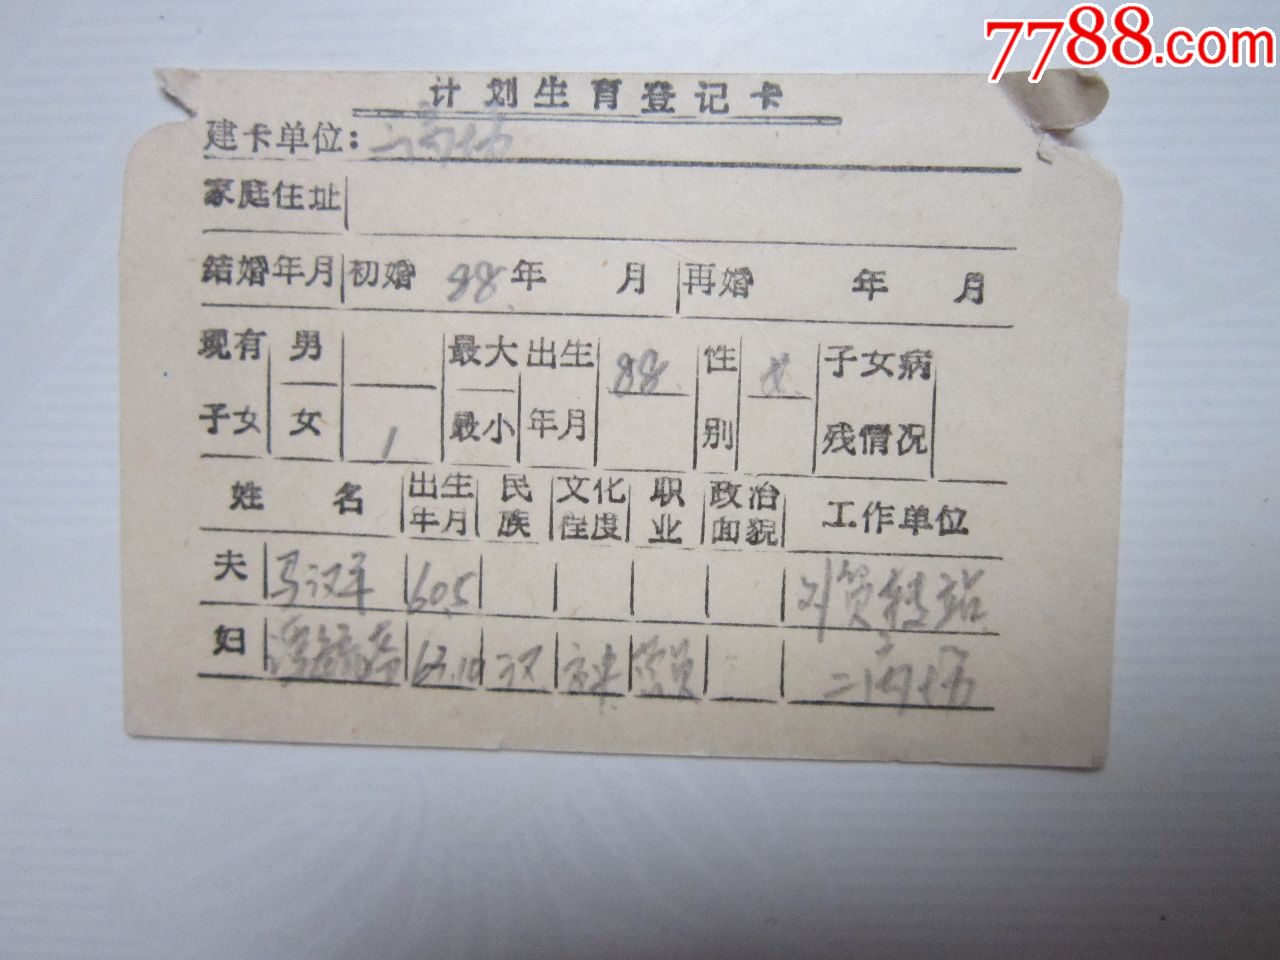 7788.com
计划生育登记卡
建卡单位:
家庭住址
结婚年月 初婚 88 年 月 再婚 年 月
现有 男 最大 出生 88. 性 女 子女病
子女 女 1 最小 年月 别 残情况
姓 名 出生 民 文化 职 政治 工作单位
年月 族 程度 业 面貌
夫 马汉平 60.5
妇 63.10 汉